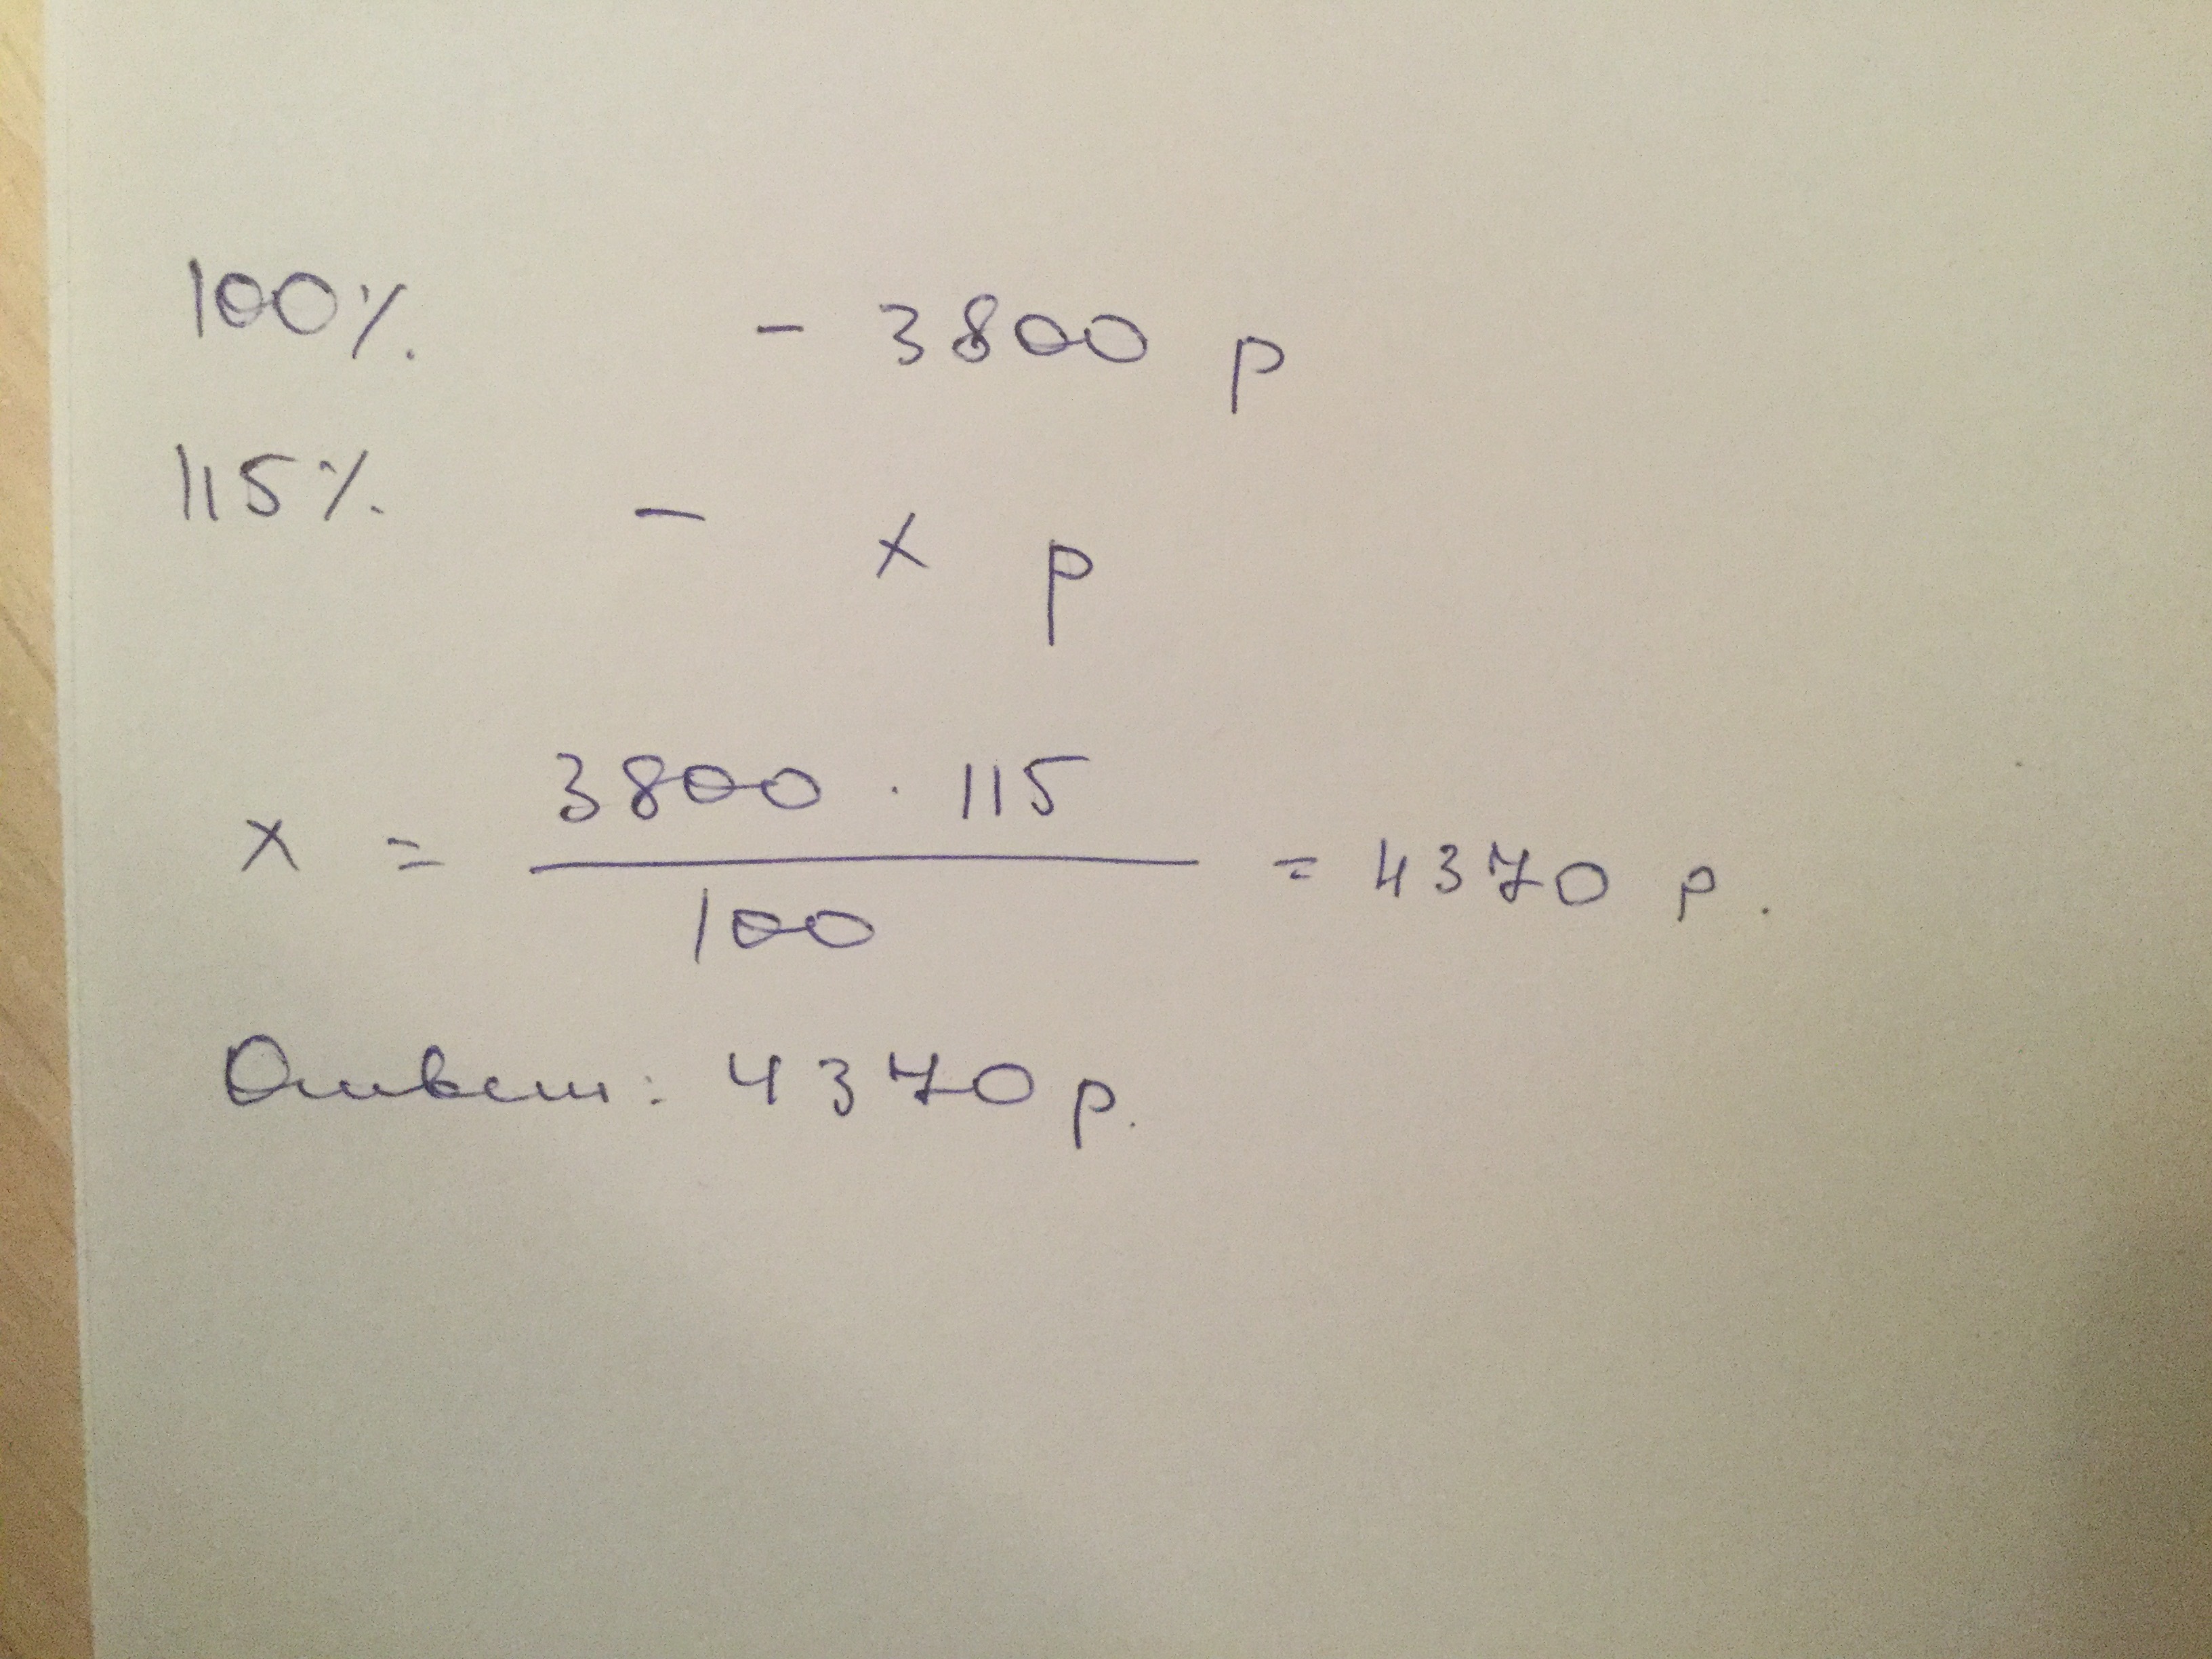 100% - 3800 р
115% - x р
x = 3800 · 115 / 100 = 4370 р.
Ответ: 4370 р.